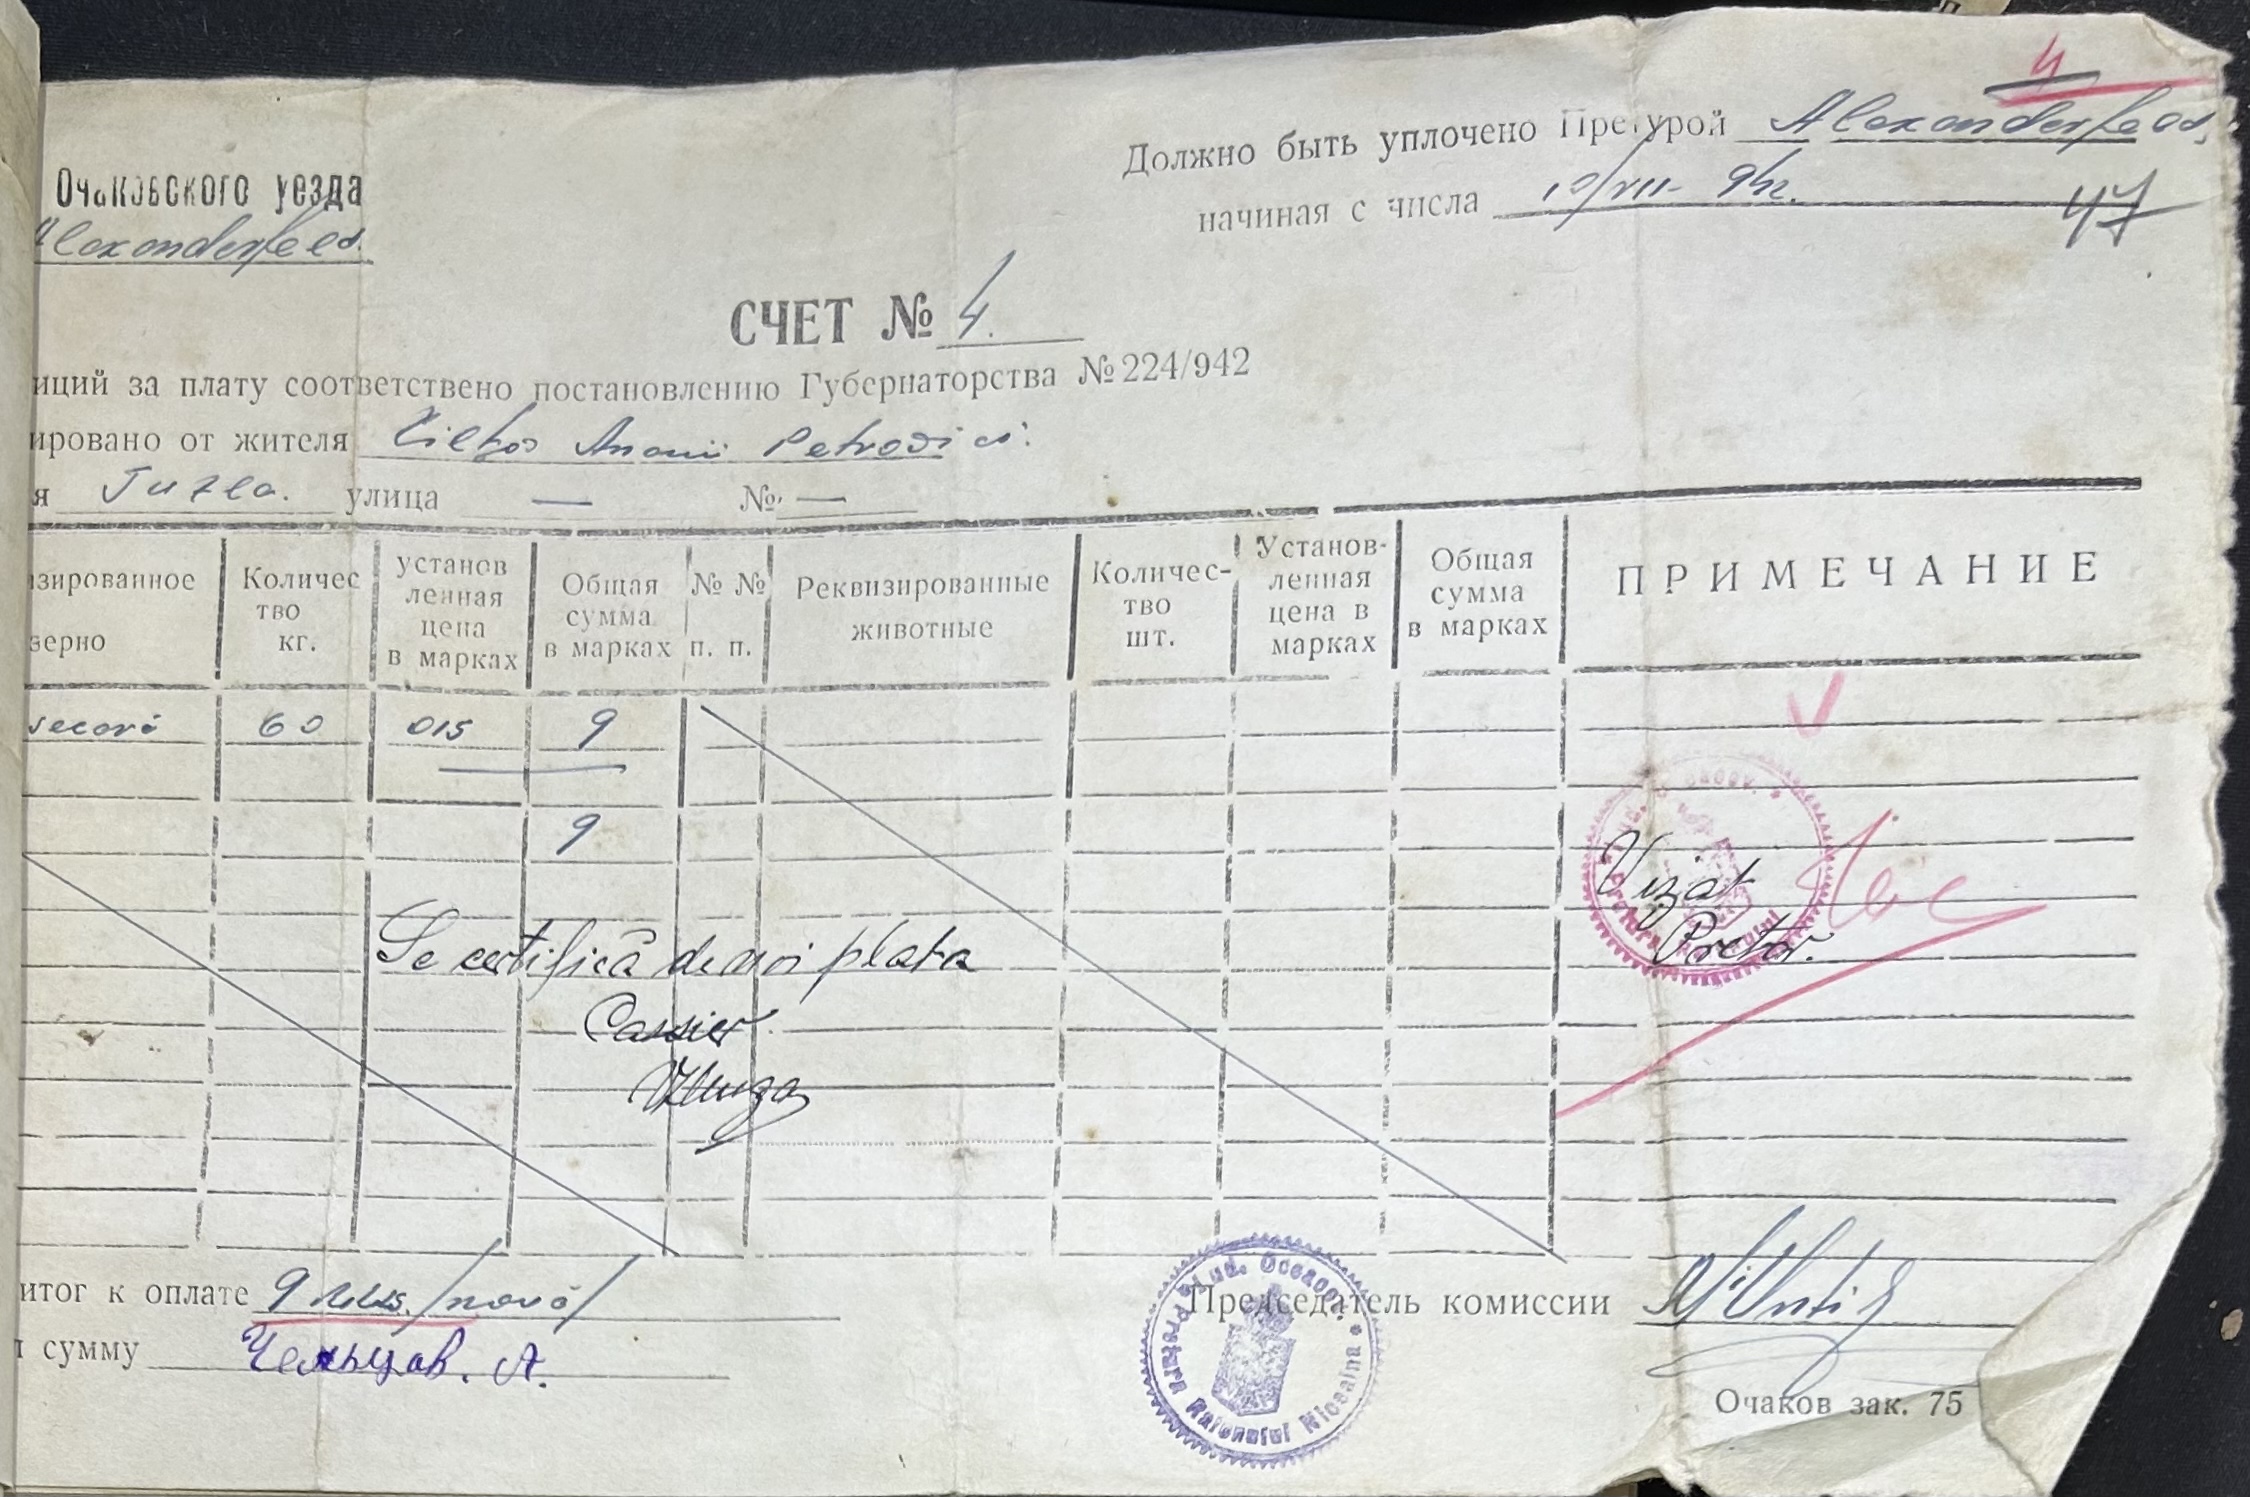 4
Должно быть уплочено Претурой Alexanderfeld,
Очаковского уезда
начиная с числа 10/VII- 942.
47
Alexanderfeld.
СЧЕТ № 4.
иций за плату соответствено постановлению Губернаторства № 224/942
ировано от жителя Petrovici.
я Tuzla. улица — № —
изированное зерно
Количес тво кг.
установ ленная цена в марках
Общая сумма в марках
№ № п. п.
Реквизированные животные
Количес- тво шт.
Установ- ленная цена в марках
Общая сумма в марках
ПРИМЕЧАНИЕ
secară 60 015 9
9
Se certifică de noi plata
Cassier
Vizat
Pretor.
итог к оплате 9 /nouă/
Председатель комиссии
л сумму Чельцов. А.
Jud. Oceacov. * Pretura Raionului Nicoaina *
Очаков зак. 75